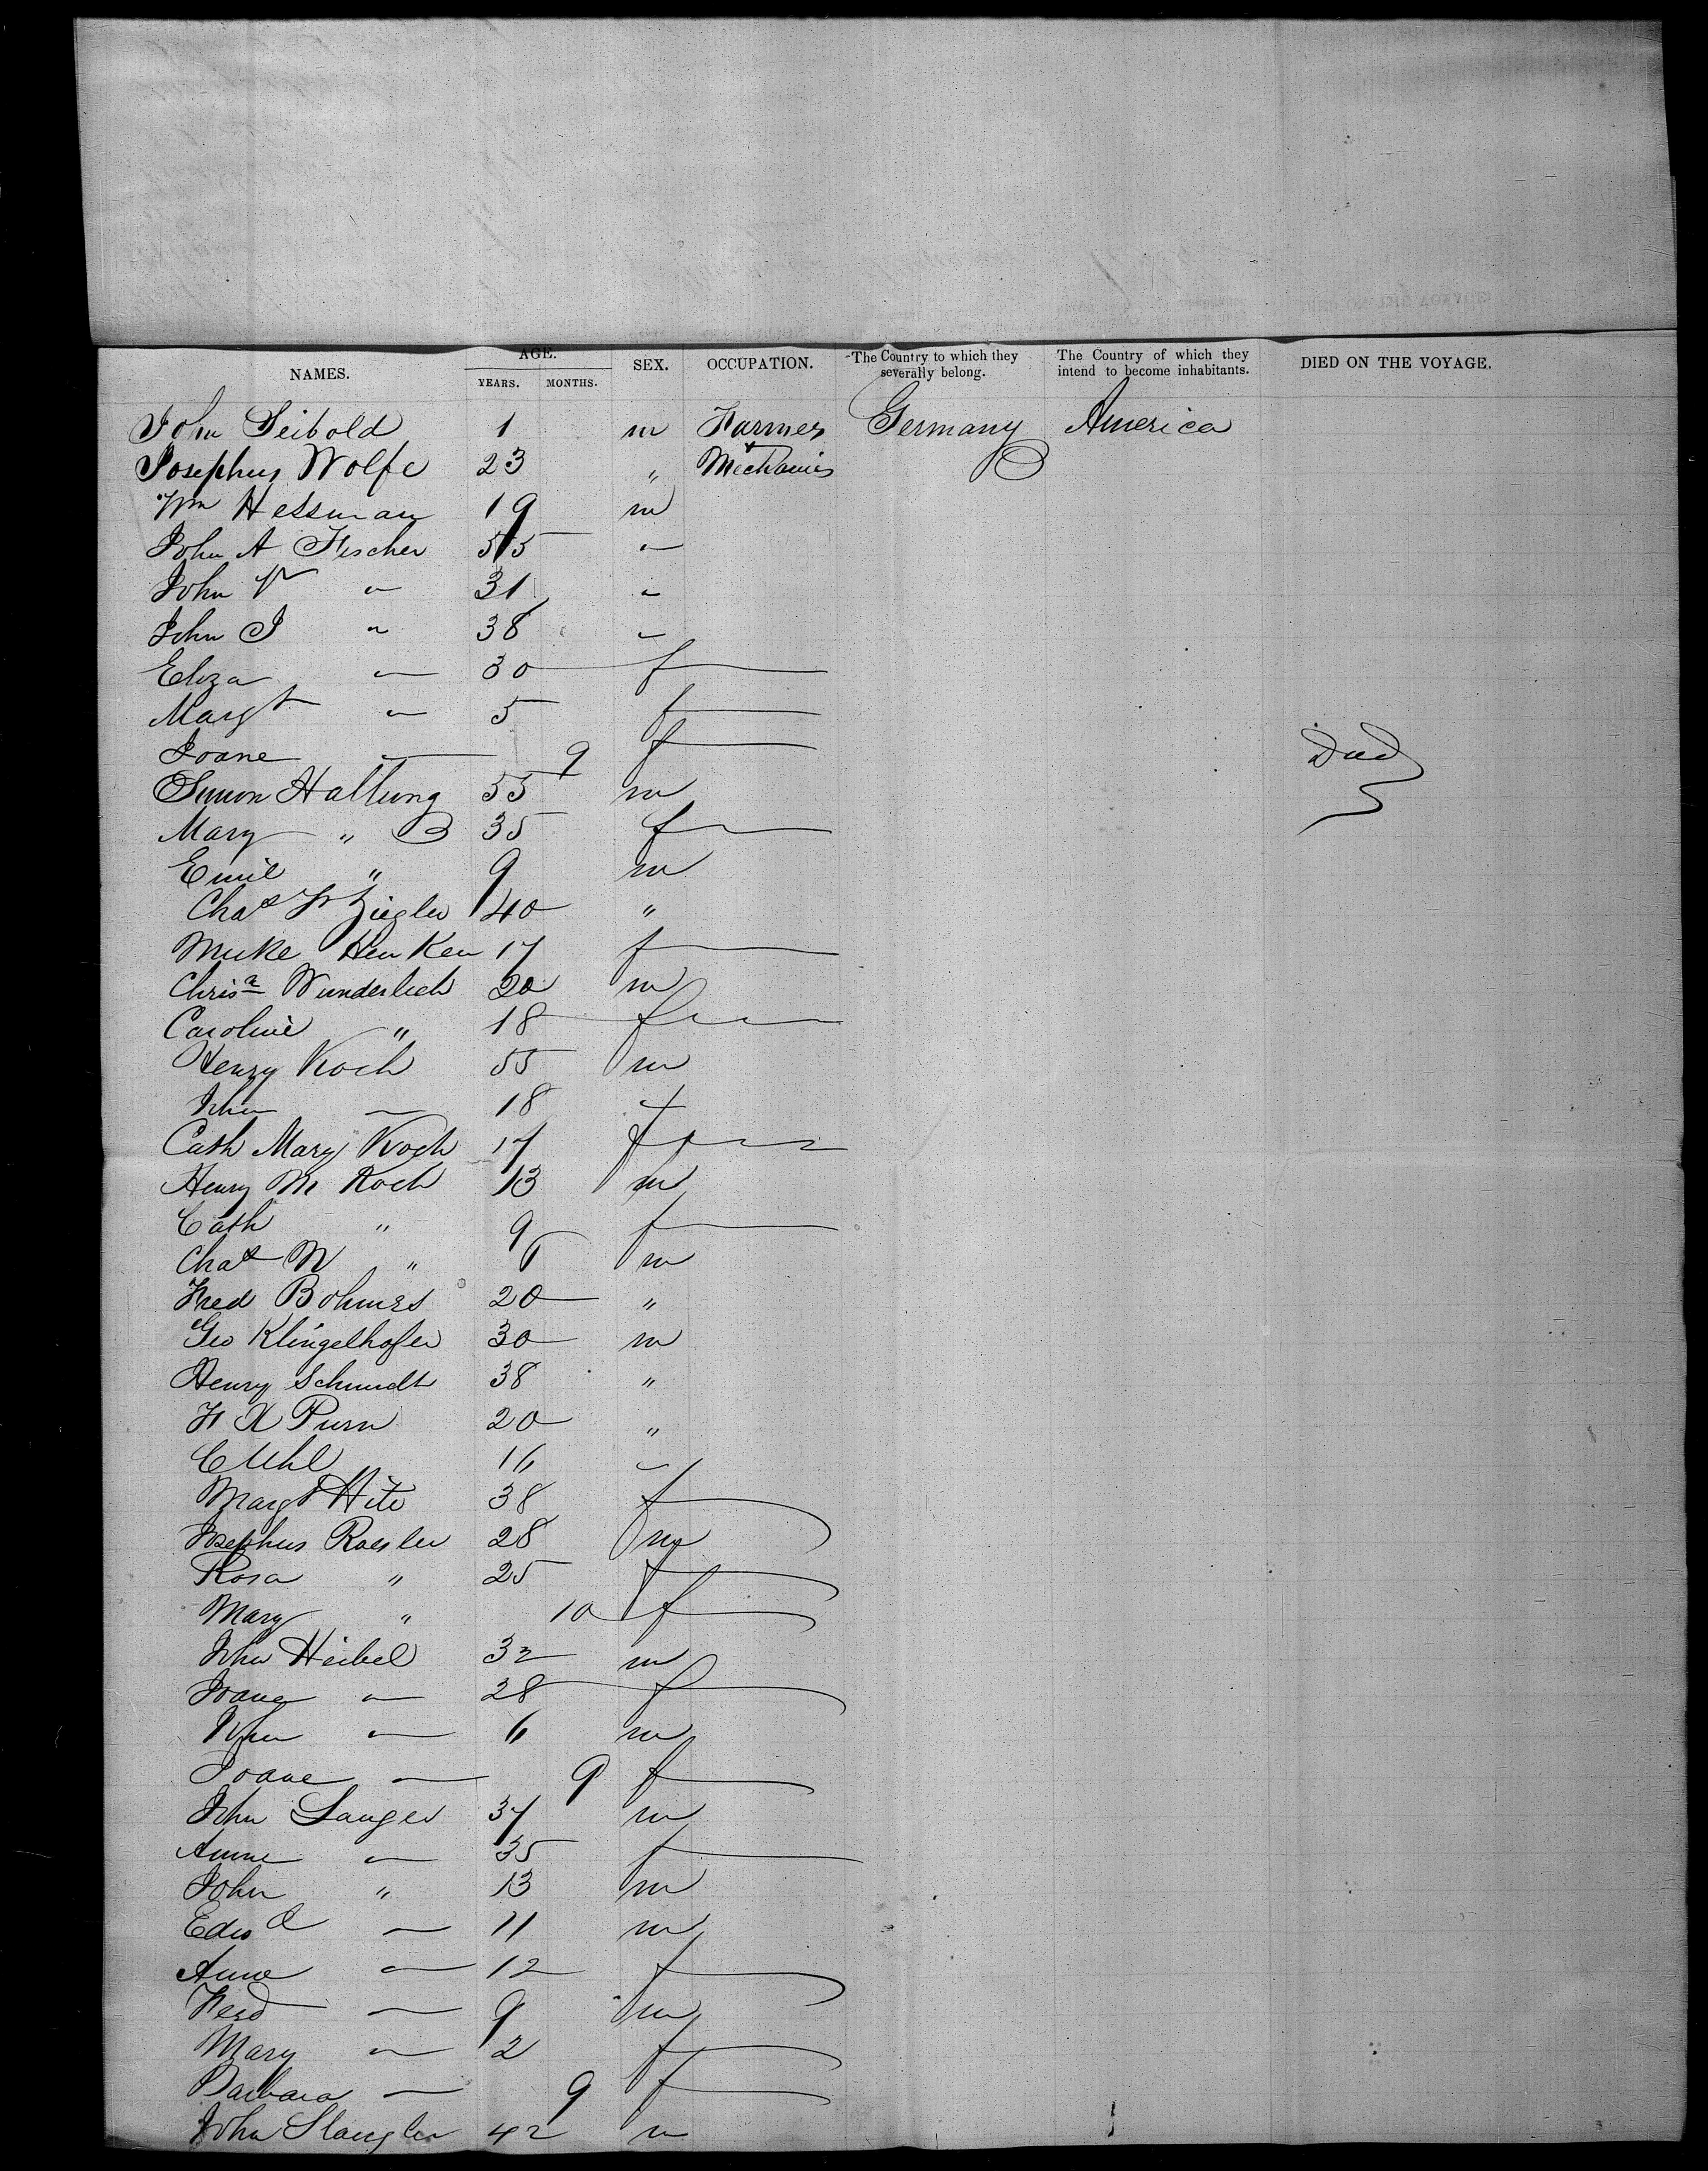 NAMES. AGE. YEARS. MONTHS. SEX. OCCUPATION. The Country to which they severally belong. The Country of which they intend to become inhabitants. DIED ON THE VOYAGE.
John Seibold 1 m Farmers Germany America
Josephus Wolfe 23 " Mechanics
Wm Hessman 19 m
John A Fischer 55 "
John " 31 "
John J " 38 "
Eliza " 30 f
Margt " 5 f
Joane " 9 f Died
Simon Hallung 55 m
Mary " 35 f
Emil " 9 m
Chas Fr Ziegler 40 "
Henken 17 f
Chrisn Wunderlich 20 m
Caroline " 18 f
Henry Koch 55 m
John " 18 "
Cath Mary Koch 17 f
Henry M Koch 13 m
Cath " 9 f
Chas W " 6 m
Fred Bohmes 20 "
Geo Klingelhofer 30 m
Henry Schmidt 38 "
F X Purn 20 "
C Uhl 16 "
Margt 38 f
Josephus Roesler 28 m
Rosa " 25 f
Mary " 10 f
John Heibel 32 m
Joane " 28 f
John " 6 m
Joane " 9 f
John Langes 37 m
Anne " 35 f
John " 13 m
Edwd " 11 m
Anne " 12 f
Ferd " 9 m
Mary " 2 f
Barbara " 9 f
John Slangler 42 m